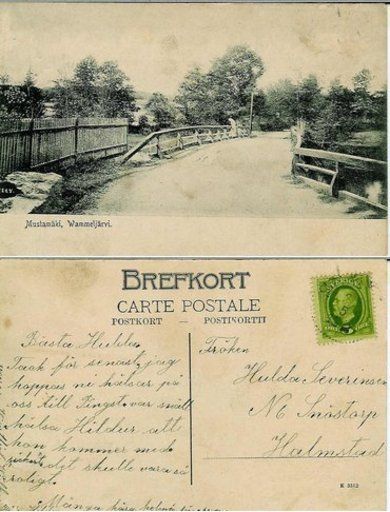 Mustamäki, Wammeljärvi.
BREFKORT
CARTE POSTALE
POSTKORT — POSTIKORTTI
Bästa Hulda
Tack för senast, jag
hoppas ni hälsar på
oss till Pingst. var snäll
hälsa Hildur att
hon kommer med
det skulle vara så
roligt.
Många kära
Fröken
Hulda Severinsen
N 6 Snöstorp
Halmstad
K 3312